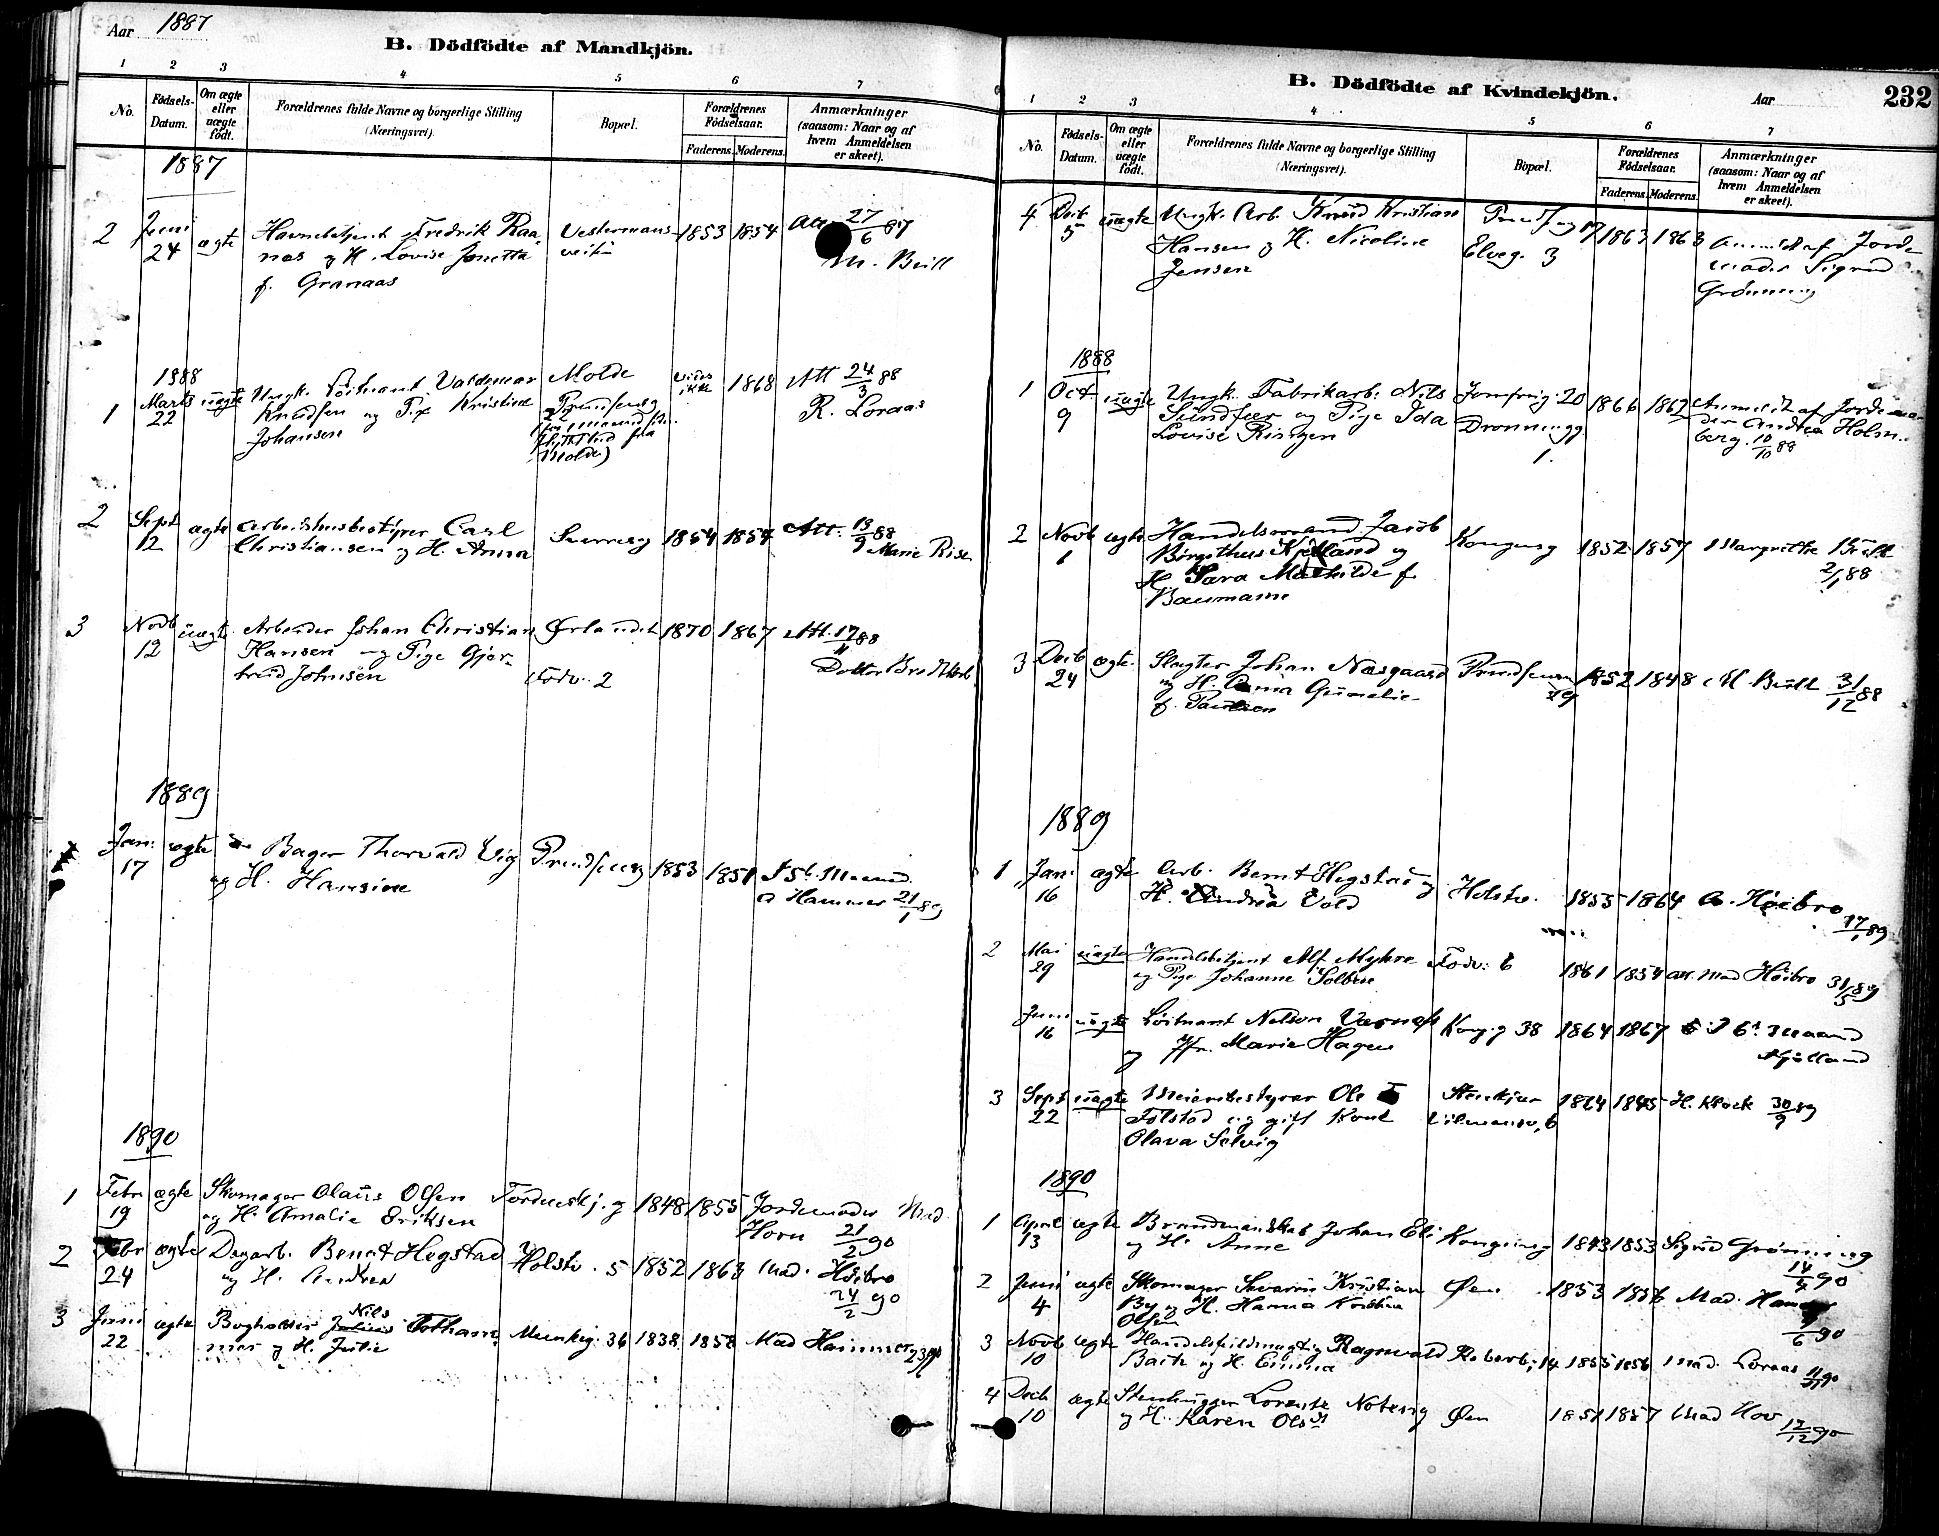 Aar 1887
B. Dödfödte af Mandkjön.
1 2 3 4 5 6 7
No.
Födsels-
Datum.
Om ægte
eller
uægte
født.
Forældrenes fulde Navne og borgerlige Stilling
(Næringsvei).
Bopæl.
Forældrenes
Födselsaar.
Faderens. Moderens.
Anmærkninger
(saasom: Naar og af
hvem Anmeldelsen
er skeet).
1887
2 Juni 24 ægte Havnebetjent Fredrik Raa-
nes og H. Lovise Jonetta
f. Granaas
Vestermans-
veiten
1853 1854
27/6 87
M. Bull
1888
1 Marts 22 uægte Ungk. Löitnant Valdemar
Knudsen og Pige Kristine
Johansen
Molde
Molde)
1868 Att 24/3 88
R. Loraas
2 Sept 12 ægte Arbeidshusbestyrer Carl
Christiansen og H. Anna
Sverresg 1854 1854 Att. 13/9 88
Marie Rise
3 Novb 12 uægte Arbeider Johan Christian
Hansen og Pige Gjer-
trud Johnsen
Ørlandet
Fodv. 2
1870 1867 Att. 17/11 88
Doktor
1889
Jan. 17 ægte Bager Thorvald Vig
og H. Hansine
Prindsensg 1853 1851
Hammer 21/1 89
1890
1 Febr 19 ægte Skomager Olaus Olsen
og H. Amalie Eriksen
Fordueskj. g 1848 1855 Jordemoder Mad.
Horn 21/2 90
2 Febr 24 ægte Dagarb. Bernt Hegstad
og H. Andrea
Holstv. 5 1852 1863 Mad. Höibro
24/2 90
3 Juni 22 ægte Bogholder Nils
og H. Julie
Munkeg. 36 1838 1858 Mad Hammer
B. Dödfödte af Kvindekjön.
Aar 232
1 2 3 4 5 6 7
No.
Födsels-
Datum.
Om ægte
eller
uægte
födt.
Forældrenes fulde Navne og borgerlige Stilling
(Næringsvei).
Bopæl.
Forældrenes
Födselsaar.
Faderens. Moderens.
Anmærkninger
(saasom: Naar og af
hvem Anmeldelsen
er skeet).
4 Decb 5 uægte Ungk. Arb. Knud Kristian
Hansen og H. Nicoline
Jensen
Prindsensg 17
Elveg. 3
1863 1863 Anmeldt af Jorde-
moder Sigrid
Grönning
1888
1 Oct 9 uægte Ungk. Fabrikarb. Nils
Sundfær og Pige Ida
Lovise Ringen
Jomfrug. 20
Dronningg
1.
1866 1862 Anmeldt af Jordemo-
der Andrea Holm-
berg. 10/10 88
2 Novb 1 ægte Handelsmand Jacob
Börgthus Kjelland og
H. Sara Mathilde f.
Baumann
Kongensg 1852 1857 Margrethe Bull
2/1 88
3 Decb 24 ægte Slagter Johan Næsgaard
og H. Anna Gunelie
f. Paulsen
1852 1848 M Bull 31/12 88
1889
1 Jan. 16 ægte Arb. Bernt Hegstad og
H. Andrea Vold
Holstv. 1855 1864 A. Höibro
17/1 89
2 Mai 29 uægte Handelsbetjent Alf Myhre
og Pige Johanne Solbue
Fodv. 6 1861 1854 Att. Mad Höibro 31/5 89
Juni 16 uægte Löitnant Nelson
og Jfr. Marie Hagen
Kong. g 38 1864 1867
3 Sept 22 uægte Meieribestyrer Ole
Folstad og gift Kone
Olava Selvig
Stenkjær
1845 H. Klock 30/9 89
1890
1 April 13 ægte Brandmandskab Johan Eli
og H. Anne
Kongensg 1843 1853 Sigrid Grönning
14/4 90
2 Juni 4 ægte Skomager Severin Kristian
By og H. Hanna Kristina
Olsen
Øen 1853 1856 Mad.
3 Novb 10 ægte Handelsfuldmægtig Ragnvald
og H. Emma
14 1855 1856 Mad. Loraas 11/11 90
4 Decb 10 ægte Stenhugger Lorents Noteng
og H. Karen Olsdt
Øen 1851 1857 Mad Hov
12/12 90